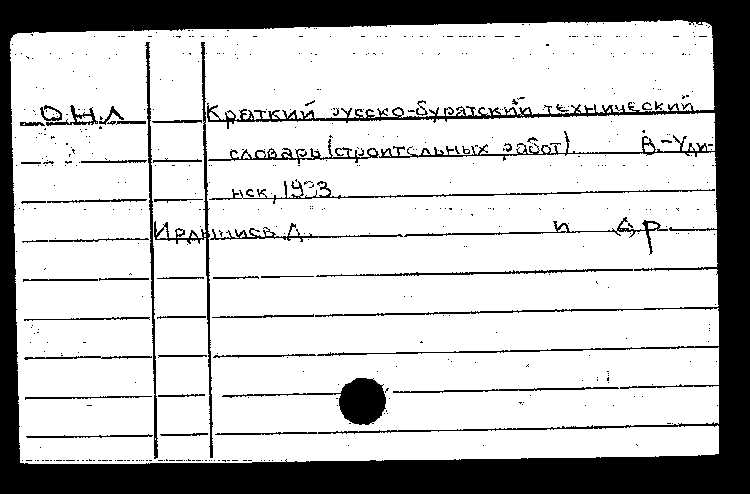 О.Н.Л Краткий русско-бурятский технический
словарь (строительных работ). В.-Уди-
нск, 1933.
Ирдыниев Д. и др.